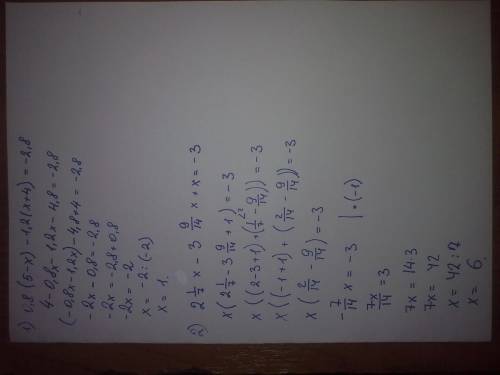 1) 0,8 (5-x) - 1,2(x+4) = -2,8
4 - 0,8x - 1,2x - 4,8 = -2,8
(-0,8x - 1,2x) - 4,8 + 4 = -2,8
-2x - 0,8 = -2,8
-2x = -2,8 + 0,8
-2x = -2
x = -2 : (-2)
x = 1.
2) 2 1/7 x - 3 9/14 x + x = -3
x (2 1/7 - 3 9/14 + 1) = -3
x ((2-3+1) + (1/7 - 9/14)) = -3
x ((-1+1) + (2/14 - 9/14)) = -3
x (2/14 - 9/14) = -3
-7/14 x = -3 | * (-1)
7x/14 = 3
7x = 14·3
7x = 42
x = 42 : 7
x = 6.